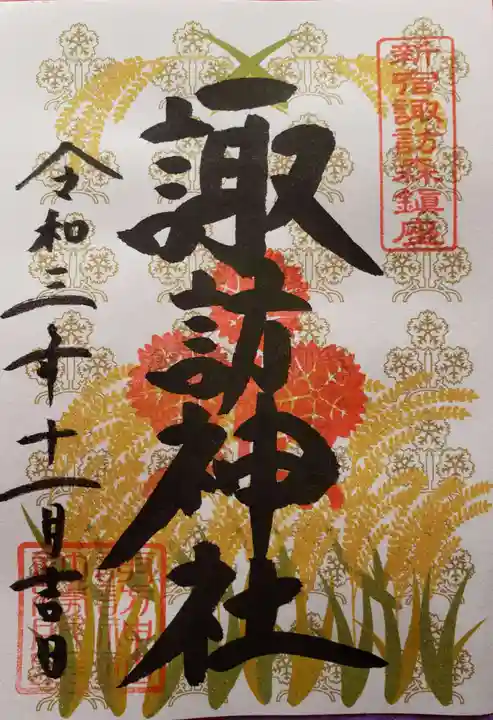 新宿諏訪森鎮座
諏訪神社
令和三年十一月吉日